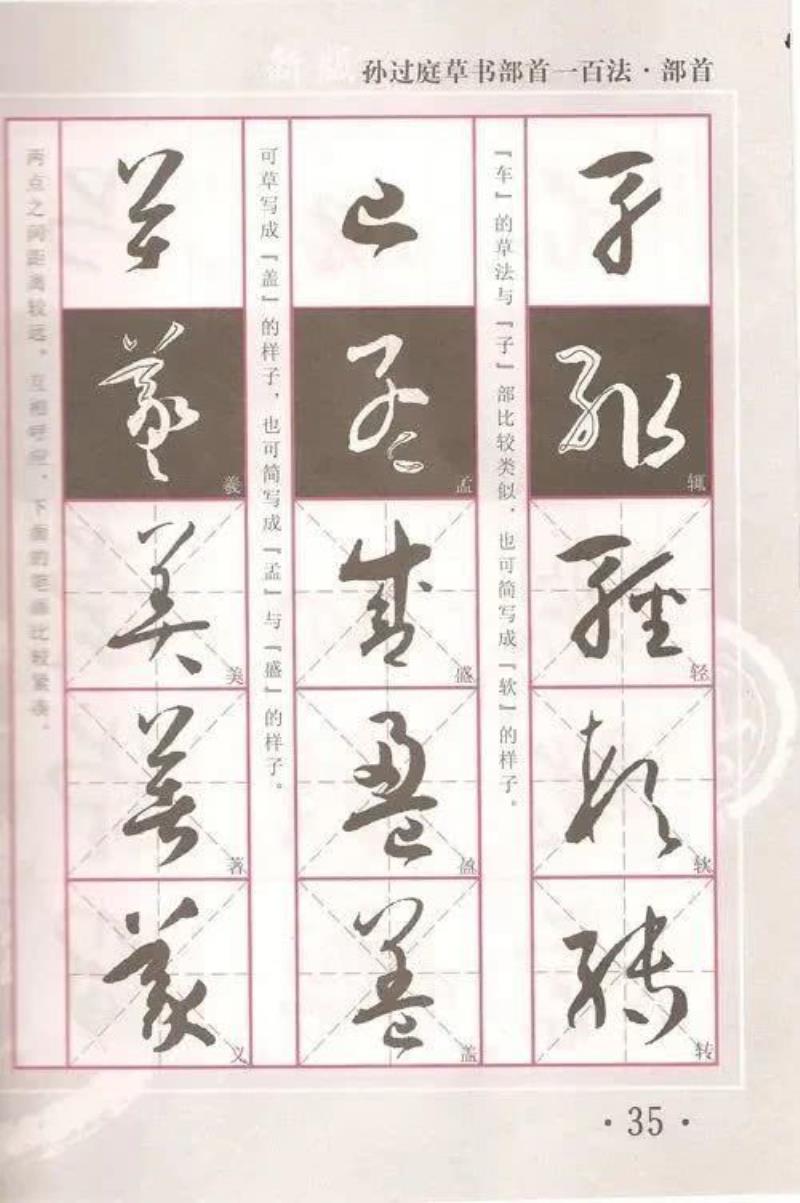 新版
孙过庭草书部首一百法·部首
辄
轻
软
转
『车』的草法与『子』部比较类似，也可简写成『软』的样子。
孟
盛
盈
盖
可草写成『盖』的样子，也可简写成『孟』与『盛』的样子。
羲
美
著
义
两点之间距离较远，互相呼应，下面的笔画比较紧凑。
·35·